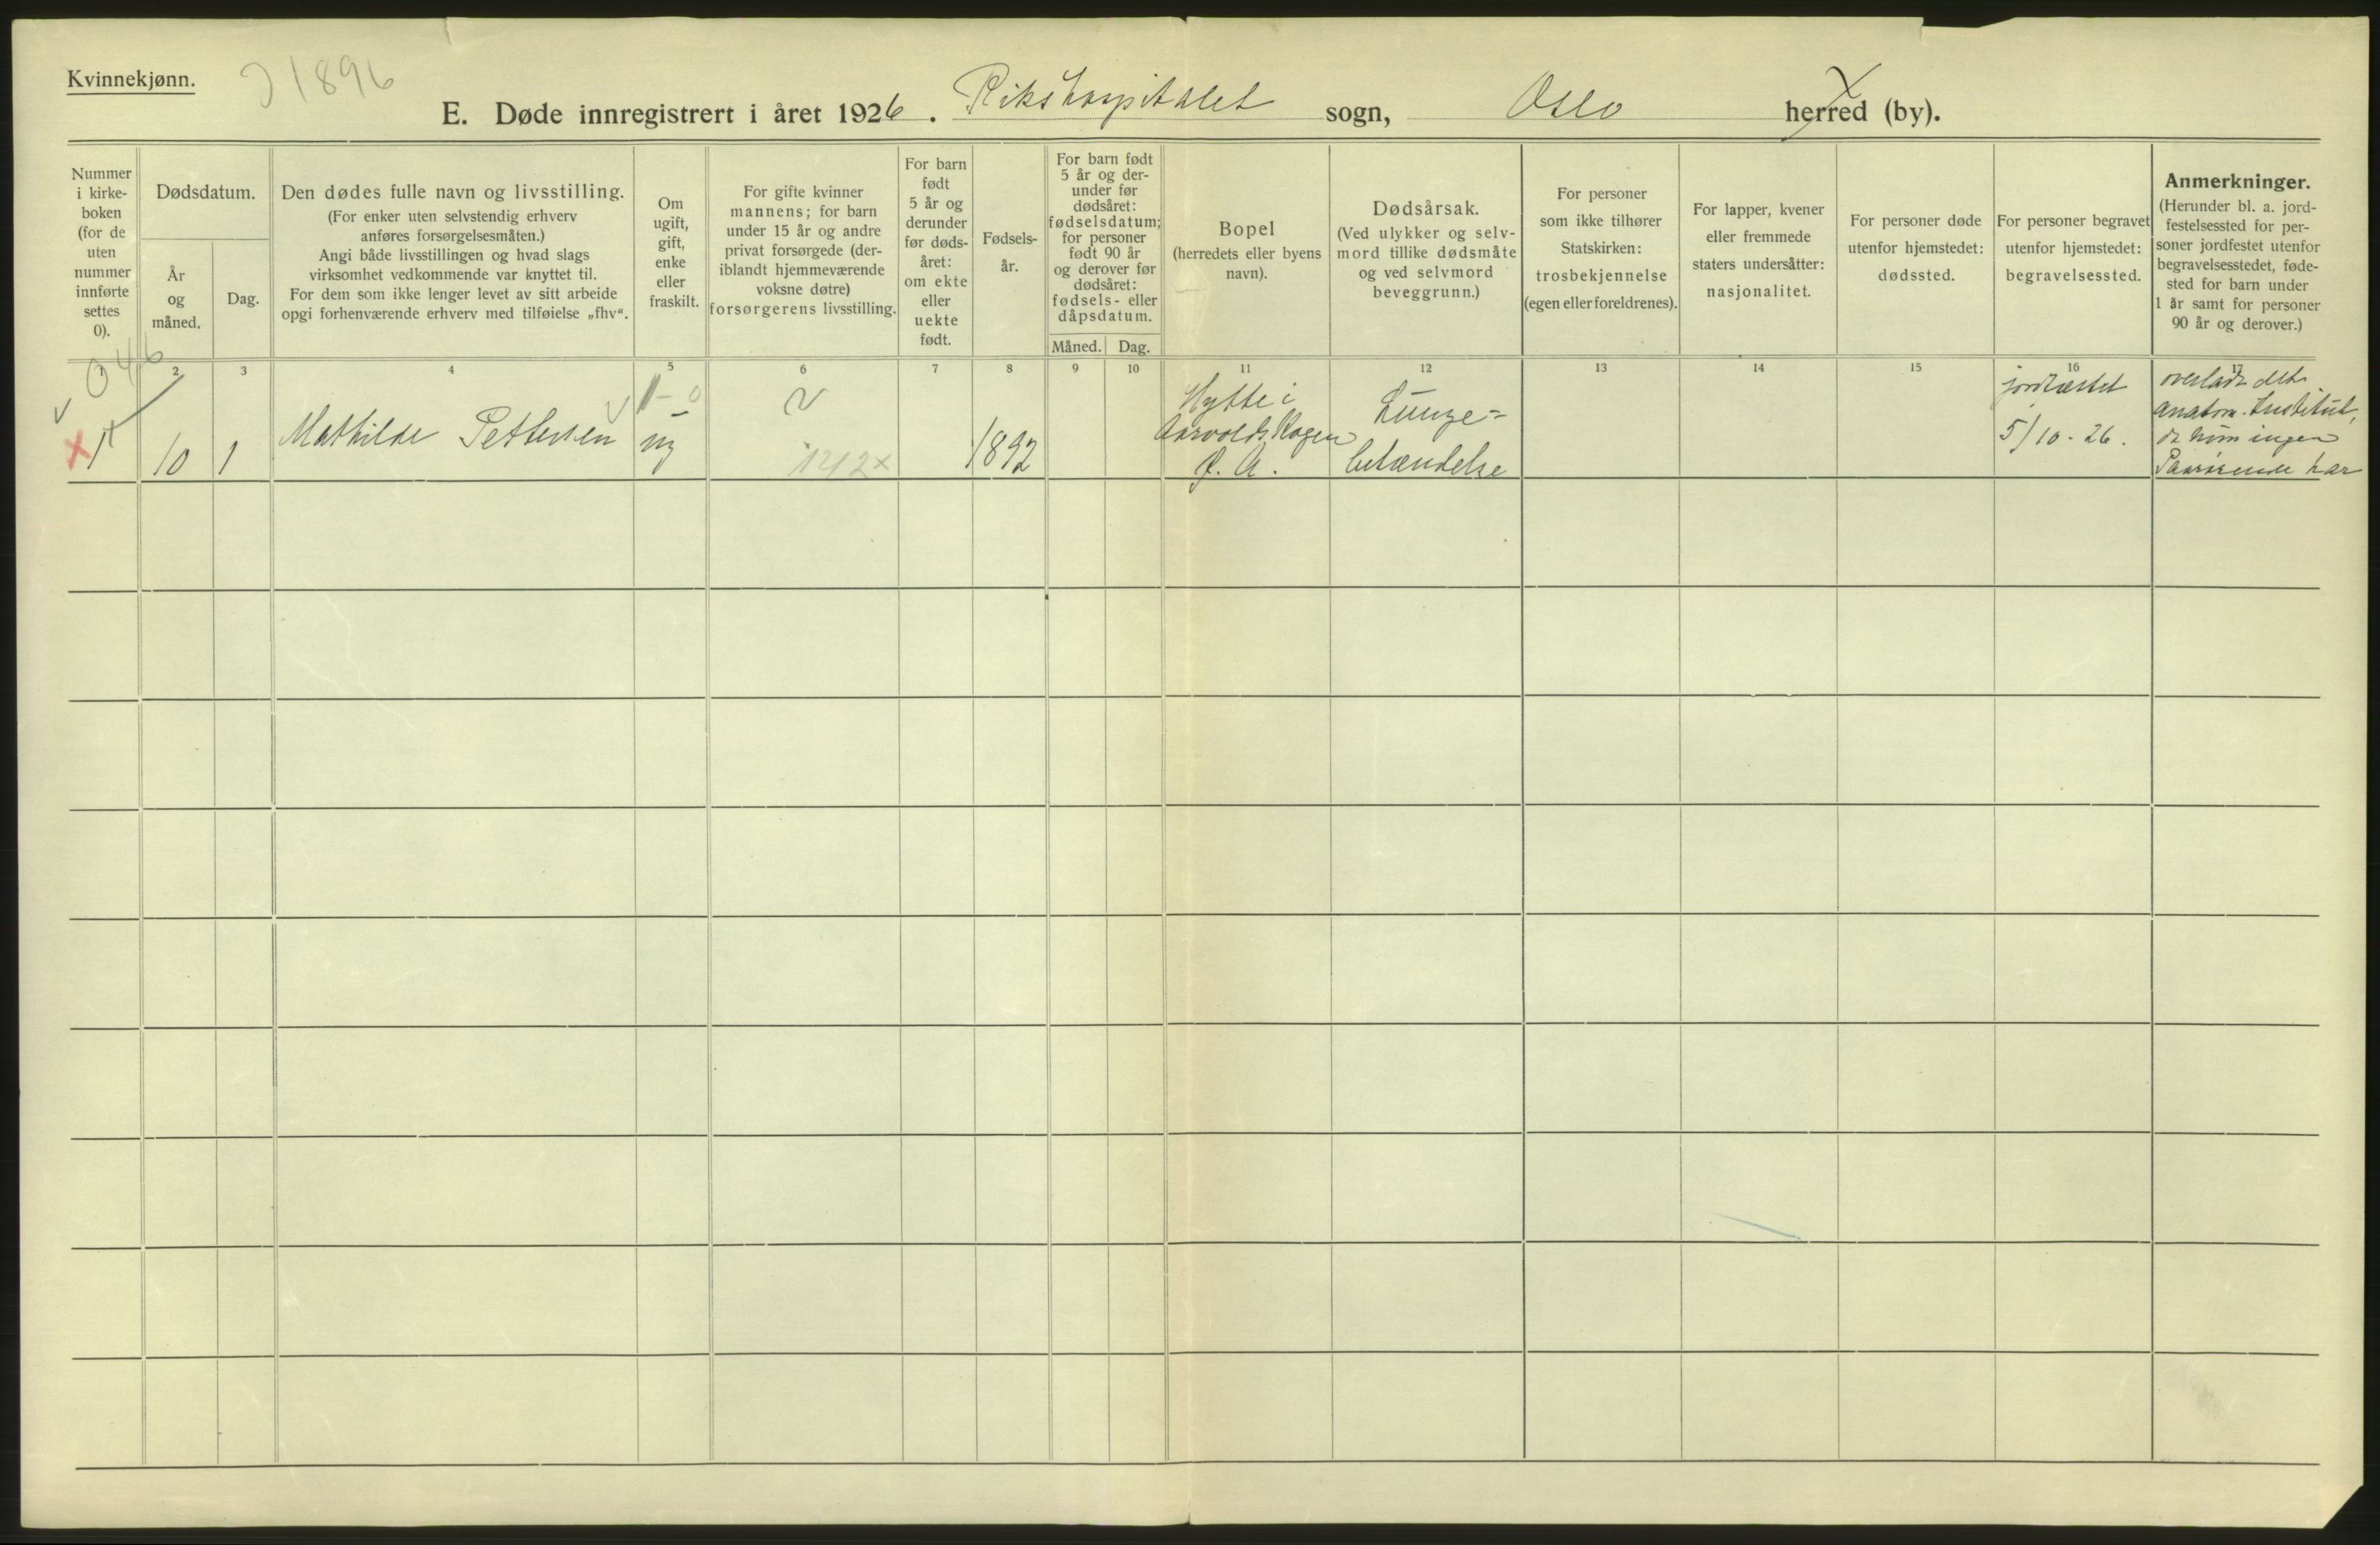 Kvinnekjønn.
1896
E. Døde innregistrert i året 1926. Rikshospitalet sogn, Oslo herred (by).
Nummer
i kirke-
boken
(for de
uten
nummer
innførte
settes
0).
Dødsdatum.
År
og
måned.
Dag.
Den dødes fulle navn og livsstilling.
(For enker uten selvstendig erhverv
anføres forsørgelsesmåten.)
Angi både livsstillingen og hvad slags
virksomhet vedkommende var knyttet til.
For dem som ikke lenger levet av sitt arbeide
opgi forhenværende erhverv med tilføielse „fhv“.
Om
ugift,
gift,
enke
eller
fraskilt.
For gifte kvinner
mannens; for barn
under 15 år og andre
privat forsørgede (der-
iblandt hjemmeværende
voksne døtre)
forsørgerens livsstilling.
For barn
født
5 år og
derunder
før døds-
året:
om ekte
eller
uekte
født.
Fødsels-
år.
For barn født
5 år og der-
under før
dødsåret:
fødselsdatum;
for personer
født 90 år
og derover før
dødsåret:
fødsels- eller
dåpsdatum.
Måned. Dag.
Bopel
(herredets eller byens
navn).
Dødsårsak.
(Ved ulykker og selv-
mord tillike dødsmåte
og ved selvmord
beveggrunn.)
For personer
som ikke tilhører
Statskirken:
trosbekjennelse
(egen eller foreldrenes).
For lapper, kvener
eller fremmede
staters undersåtter:
nasjonalitet.
For personer døde
utenfor hjemstedet:
dødssted.
For personer begravet
utenfor hjemstedet:
begravelsessted.
Anmerkninger.
(Herunder bl. a. jord-
festelsessted for per-
soner jordfestet utenfor
begravelsesstedet, føde-
sted for barn under
1 år samt for personer
90 år og derover.)
1 2 3 4 5 6 7 8 9 10 11 12 13 14 15 16 17
046
1
10
1
Mathilde Pettersen
ug
1212x
1892
Hytte i
Aarvoldskogen
Ø. A.
Lunge=
betændelse
jordfæstet
5/10-26.
overladt det
anatom. Institut,
da hun ingen
Paarørende har